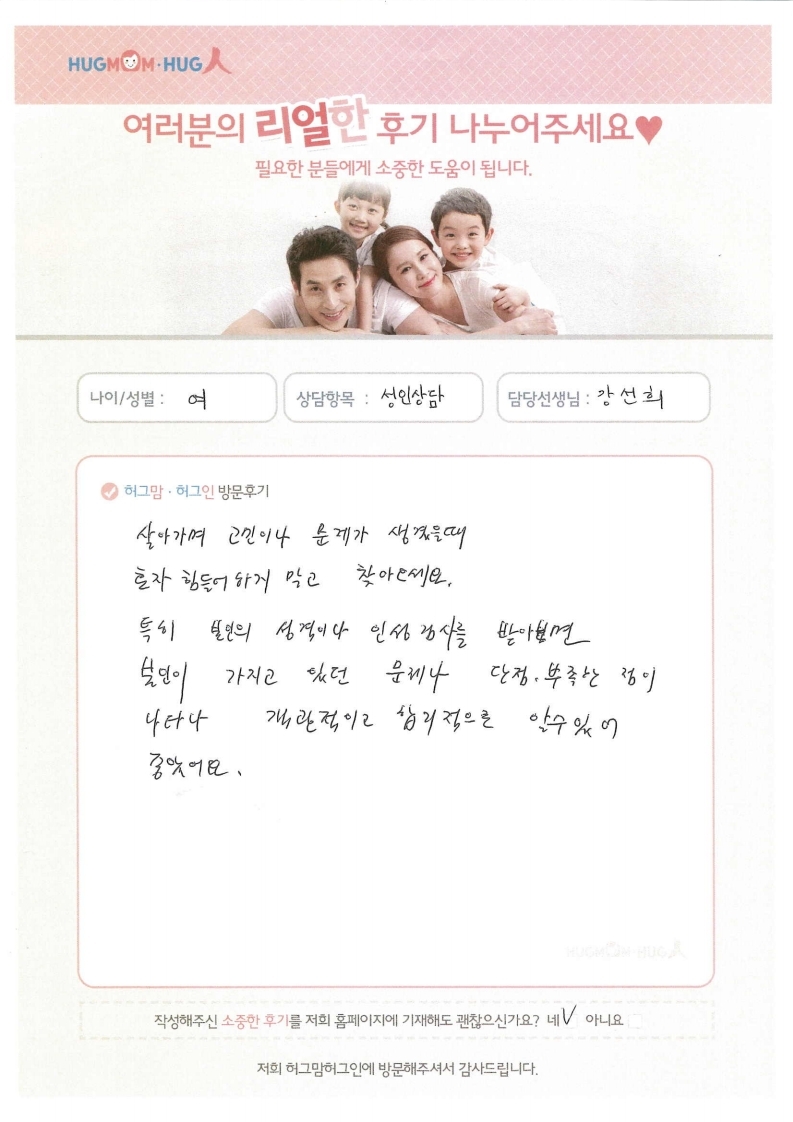 HUGMOM·HUG人
여러분의 리얼한 후기 나누어주세요♥
필요한 분들에게 소중한 도움이 됩니다.
나이/성별 : 여
상담항목 : 성인상담
담당선생님 : 강선희
허그맘·허그인 방문후기
살아가며 고민이나 문제가 생겼을때
혼자 힘들어하지 말고 찾아오세요.
특히 본인의 성격이나 인성검사를 받아보면
본인이 가지고 있던 문제나 단점, 부족한 점이
나타나 객관적이고 합리적으로 알수있어
좋았어요.
작성해주신 소중한 후기를 저희 홈페이지에 기재해도 괜찮으신가요? 네 V 아니요
저희 허그맘허그인에 방문해주셔서 감사드립니다.